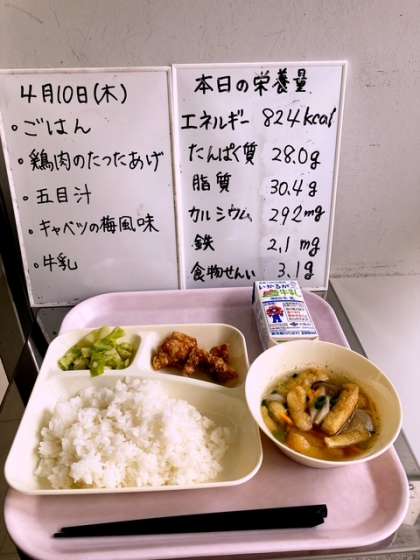 4月10日(木)
・ごはん
・鶏肉のたつたあげ
・五目汁
・キャベツの梅風味
・牛乳
本日の栄養量
エネルギー 824kcal
たんぱく質 28.0g
脂質 30.4g
カルシウム 292mg
鉄 2.1mg
食物せんい 3.1g
いかるが
牛乳